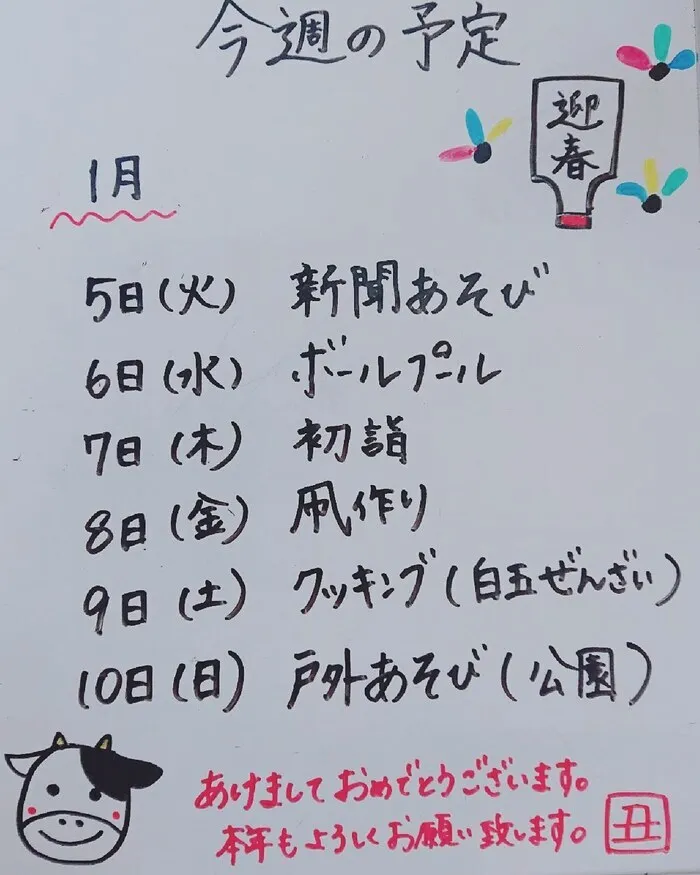 今週の予定
迎春
1月
5日(火) 新聞あそび
6日(水) ボールプール
7日(木) 初詣
8日(金) 凧作り
9日(土) クッキング(白玉ぜんざい)
10日(日) 戸外あそび(公園)
あけましておめでとうございます。
本年もよろしくお願い致します。
丑